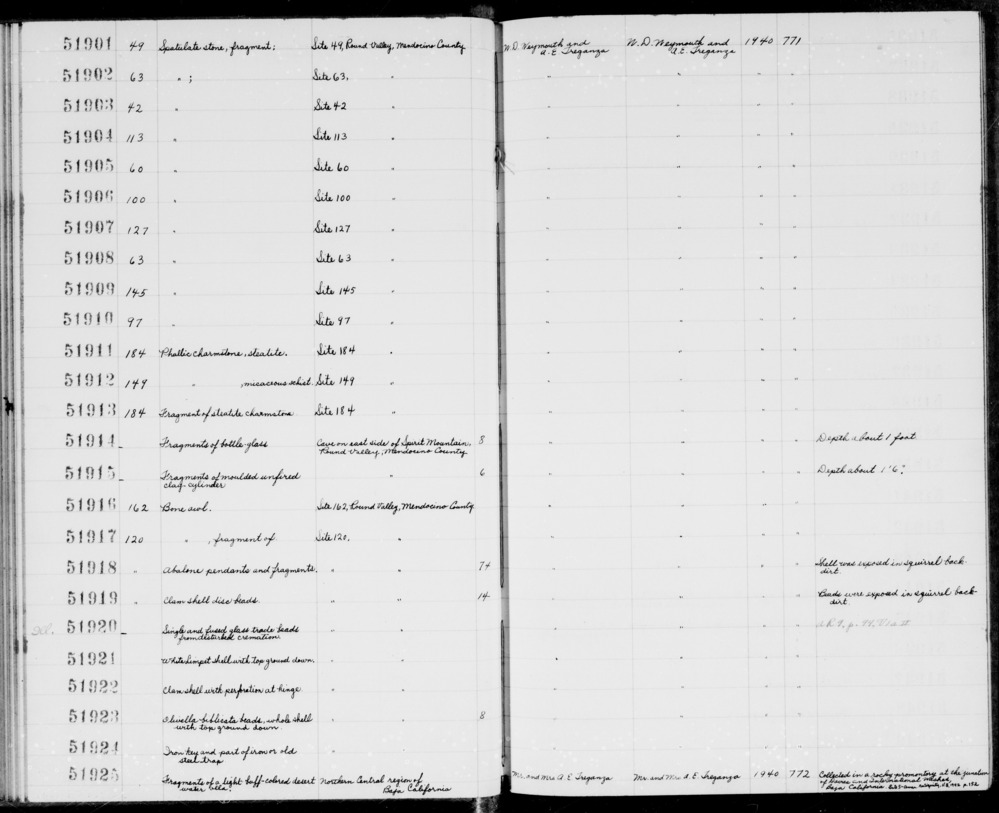 51901 49 Spatulate stone, fragment; Site 49, Round Valley, Mendocino County W.D. Weymouth and A.E. Treganza W.D. Weymouth and A.E. Treganza 1940 771
51902 63 " ; Site 63, " " " " "
51903 42 " Site 42 " " " " "
51904 113 " Site 113 " " " " "
51905 60 " Site 60 " " " " "
51906 100 " Site 100 " " " " "
51907 127 " Site 127 " " " " "
51908 63 " Site 63 " " " " "
51909 145 " Site 145 " " " " "
51910 97 " Site 97 " " " " "
51911 184 Phallic charmstone, steatite. Site 184 " " " " "
51912 149 " , micaceous schist. Site 149 " " " " "
51913 184 Fragment of steatite charmstone Site 184 " " " " "
51914 _ Fragments of bottle glass Cave on east side of Spirit Mountain, Round Valley, Mendocino County 8 " " " " Depth about 1 foot
51915 _ Fragments of moulded unfired clay-cylinder " " 6 " " " " Depth about 1'6".
51916 162 Bone awl. Site 162, Round Valley, Mendocino County " " " "
51917 120 " , fragment of Site 120, " " " " "
51918 " Abalone pendants and fragments. " " 74 " " " " Shell was exposed in squirrel back-dirt.
51919 " Clam shell disc beads. " " 14 " " " " Beads were exposed in squirrel back-dirt
51920 _ Single and fused glass trade beads from disturbed cremation " " " " " "
51921 White limpet shell with top ground down. " " " " " "
51922 Clam shell with perforation at hinge " " " " " "
51923 Olivella biplicata beads, whole shell with top ground down. " " 8 " " " "
51924 Iron key and part of iron or old steel trap " " " " " "
51925 Fragments of a light buff-colored desert water olla. Northern Central region of Baja California Mr. and Mrs A.E. Treganza Mr. and Mrs. A.E. Treganza 1940 772 Collected in a rocky promontory at the junction of and International Washes, Baja California. p. 152